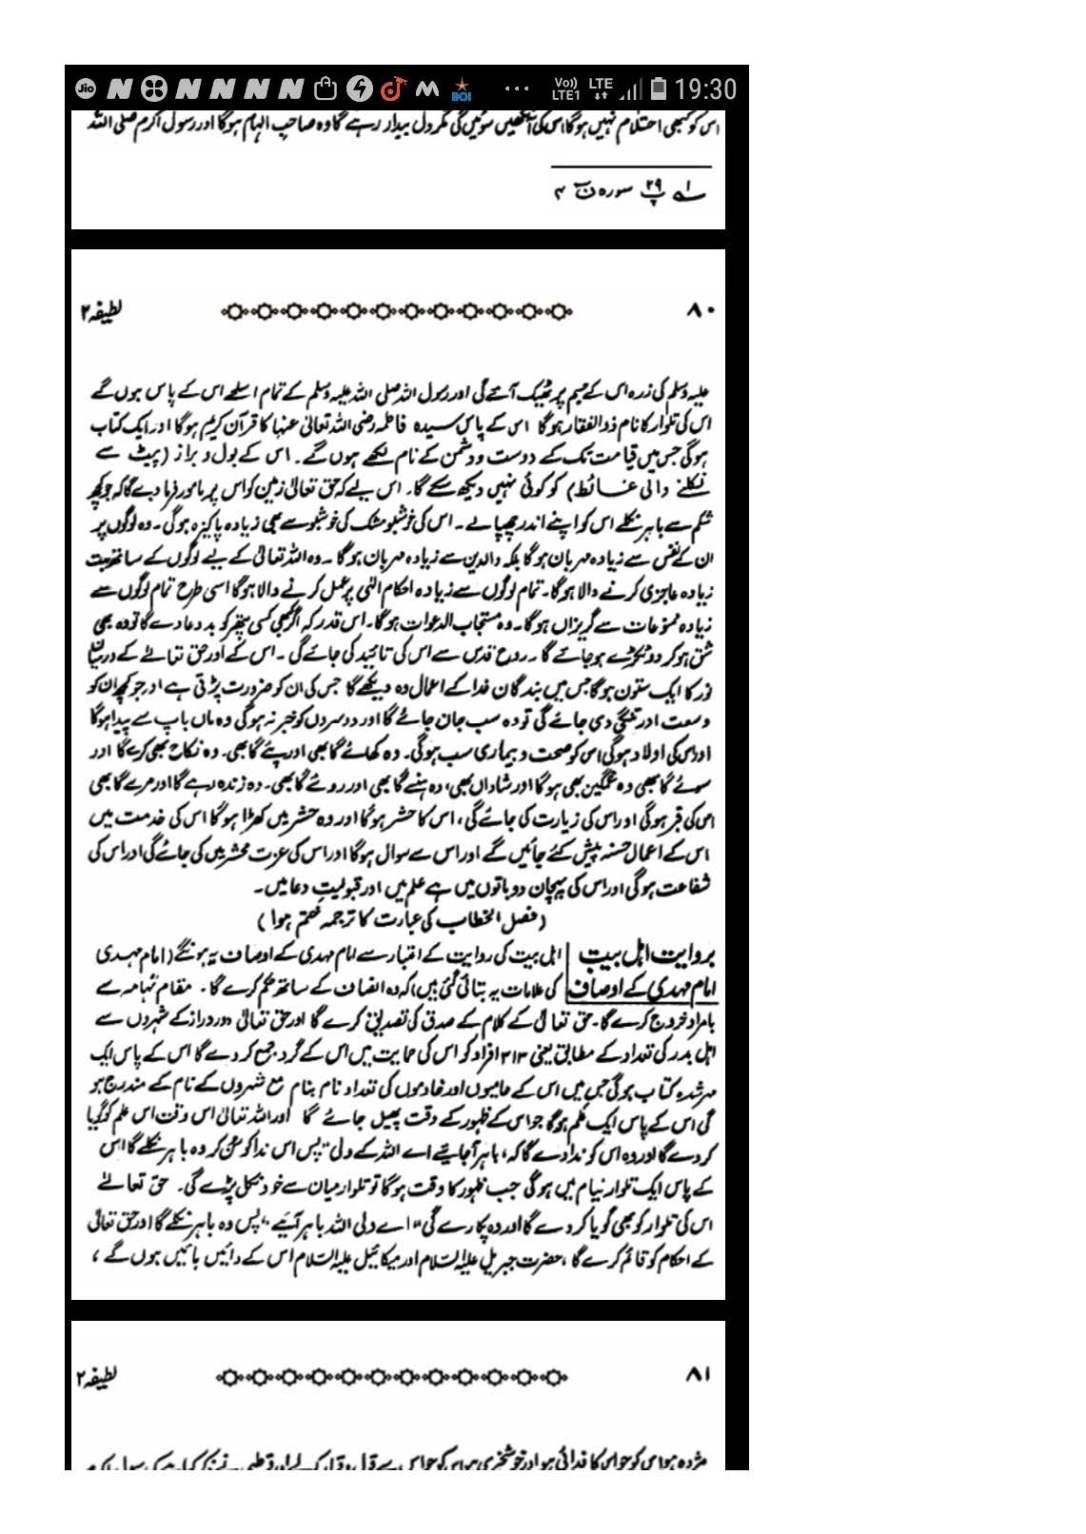 Vo)) LTE1 LTE 19:30
اس کو کبھی احتلام نہیں ہوگا اس کی آنکھیں سوئیں گی مگر دل بیدار رہے گا وہ صاحب الہام ہوگا اور رسول اکرم صلی اللہ
لہ پ ۲۹ سورہ ن ۴
۸۰ لطیفہ ۲
علیہ وسلم کی زرہ اس کے جسم پر ٹھیک آئے گی اور رسول اللہ صلی اللہ علیہ وسلم کے تمام اسلحے اس کے پاس ہوں گے
اس کی تلوار کا نام ذوالفقار ہوگا اس کے پاس سیدہ فاطمہ رضی اللہ تعالیٰ عنہا کا قرآن کریم ہوگا اور ایک کتاب
ہوگی جس میں قیامت تک کے دوست و دشمن کے نام لکھے ہوں گے۔ اس کے بول و براز (پیٹ سے
نکلنے والی غائط) کو کوئی نہیں دیکھ سکے گا۔ اس لیے کہ حق تعالیٰ زمین کو اس پر مامور فرما دے گا کہ جو کچھ
شکم سے باہر نکلے اس کو اپنے اندر چھپا لے۔ اس کی خوشبو مشک کی خوشبو سے بھی زیادہ پاکیزہ ہوگی۔ وہ لوگوں پر
ان کے نفس سے زیادہ مہربان ہوگا بلکہ والدین سے زیادہ مہربان ہوگا۔ وہ اللہ تعالیٰ کے لیے لوگوں کے ساتھ بہت
زیادہ عاجزی کرنے والا ہوگا۔ تمام لوگوں سے زیادہ احکام الٰہی پر عمل کرنے والا ہوگا اسی طرح تمام لوگوں سے
زیادہ ممنوعات سے گریزاں ہوگا۔ وہ مستجاب الدعوات ہوگا۔ اس قدر کہ اگر کبھی کسی پتھر کو بد دعا دے گا تو وہ بھی
شق ہو کر دو ٹکڑے ہوجائے گا۔ روح قدس سے اس کی تائید کی جائے گی۔ اس کے اور حق تعالےٰ کے درمیان
نور کا ایک ستون ہوگا جس میں بندگان خدا کے اعمال وہ دیکھے گا جس کی ان کو ضرورت پڑتی ہے اور جو کچھ ان کو
وسعت اور تنگی دی جائے گی تو وہ سب جان جائے گا اور دوسروں کو خبر نہ ہوگی وہ ماں باپ سے پیدا ہوگا
اور اس کی اولاد ہوگی اس کو صحت و بیماری سب ہوگی۔ وہ کھائے گا بھی اور پئے گا بھی۔ وہ نکاح بھی کرے گا اور
سوئے گا بھی وہ غمگین بھی ہوگا اور شاداں بھی، وہ ہنسے گا بھی اور روئے گا بھی۔ وہ زندہ رہے گا اور مرے گا بھی
اس کی قبر ہوگی اور اس کی زیارت کی جائے گی، اس کا حشر ہوگا اور وہ حشر میں کھڑا ہوگا اس کی خدمت میں
اس کے اعمال حسنہ پیش کئے جائیں گے اور اس سے سوال ہوگا اور اس کی عزت محشر میں کی جائے گی اور اس کی
شفاعت ہوگی اور اس کی پہچان دو باتوں میں ہے علم میں اور قبولیت دعا میں۔
(فصل الخطاب کی عبارت کا ترجمہ ختم ہوا)
بروایت اہل بیت اہل بیت کی روایت کے اعتبار سے امام مہدی کے اوصاف یہ ہونگے (امام مہدی
امام مہدی کے اوصاف کی علامات یہ بتائی گئی ہیں) کہ وہ انصاف کے ساتھ حکم کرے گا۔ مقام تہامہ سے
بامراد خروج کرے گا۔ حق تعالیٰ کے کلام کے صدق کی تصدیق کرے گا اور حق تعالیٰ دور دراز کے شہروں سے
اہل بدر کی تعداد کے مطابق یعنی ۳۱۳ افراد کو اس کی حمایت میں اس کے گرد جمع کر دے گا اس کے پاس ایک
مہر شدہ کتاب ہوگی جس میں اس کے حامیوں اور خادموں کی تعداد نام بنام مع شہروں کے نام کے مندرج ہو
گی اس کے پاس ایک علم ہوگا جو اس کے ظہور کے وقت پھیل جائے گا اور اللہ تعالیٰ اس وقت اس علم کو گویا
کردے گا اور وہ اس کو ندا دے گا کہ، باہر آجایئے اے اللہ کے ولی" پس اس ندا کو سن کر وہ باہر نکلے گا اس
کے پاس ایک تلوار نیام میں ہوگی جب ظہور کا وقت ہوگا تو تلوار میان سے خود نکل پڑے گی۔ حق تعالےٰ
اس کی تلوار کو بھی گویا کر دے گا اور وہ پکارے گی "اے ولی اللہ باہر آئیے" پس وہ باہر نکلے گا اور حق تعالیٰ
کے احکام کو قائم کرے گا، حضرت جبریل علیہ السلام اور میکائیل علیہ السلام اس کے دائیں بائیں ہوں گے،
۸۱ لطیفہ ۲
مژدہ ہو اس کو جو اس کا فدائی ہو اور خوشخبری ہو اس کو جو اس